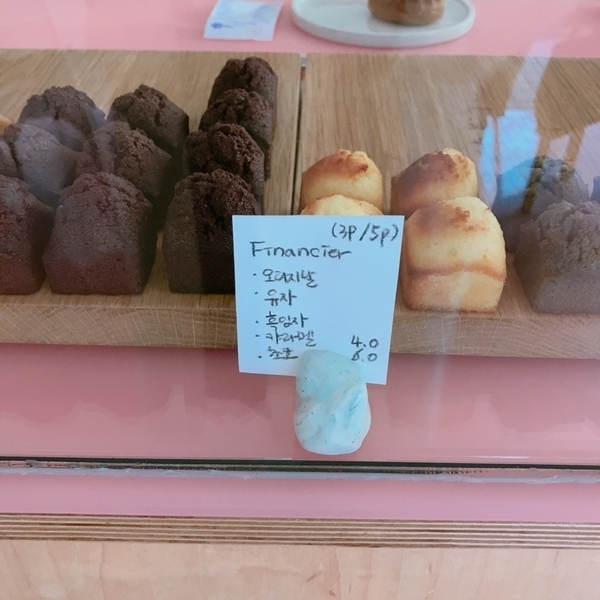 (3P/5P)
Financier
· 오리지날
· 유자
· 흑임자
· 카라멜 4.0
· 초코 6.0